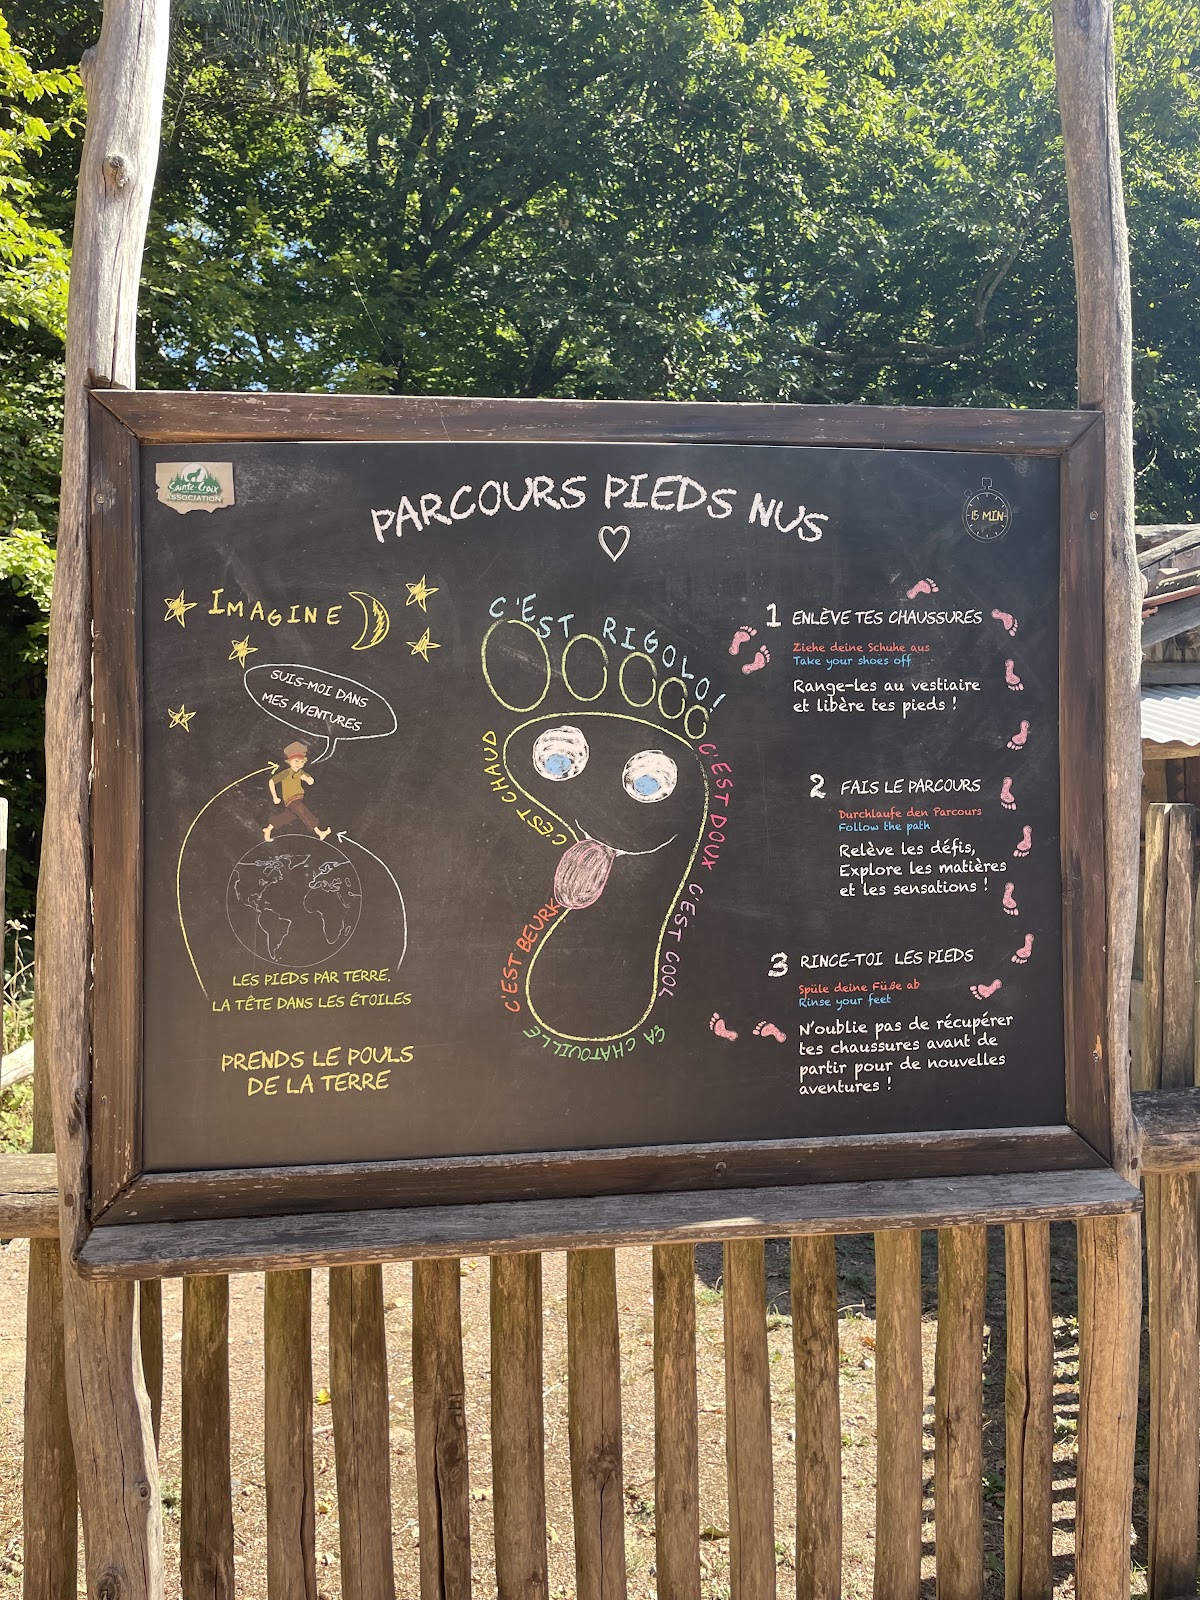 Sainte-Croix
ASSOCIATION
PARCOURS PIEDS NUS
15 MIN
IMAGINE
SUIS-MOI DANS
MES AVENTURES
LES PIEDS PAR TERRE,
LA TÊTE DANS LES ÉTOILES
PRENDS LE POULS
DE LA TERRE
C'EST RIGOLO!
C'EST CHAUD
C'EST DOUX
C'EST COOL
C'EST BEURK
ÇA CHATOUILLE
1 ENLÈVE TES CHAUSSURES
Ziehe deine Schuhe aus
Take your shoes off
Range-les au vestiaire
et libère tes pieds !
2 FAIS LE PARCOURS
Durchlaufe den Parcours
Follow the path
Relève les défis,
Explore les matières
et les sensations !
3 RINCE-TOI LES PIEDS
Spüle deine Füße ab
Rinse your feet
N'oublie pas de récupérer
tes chaussures avant de
partir pour de nouvelles
aventures !